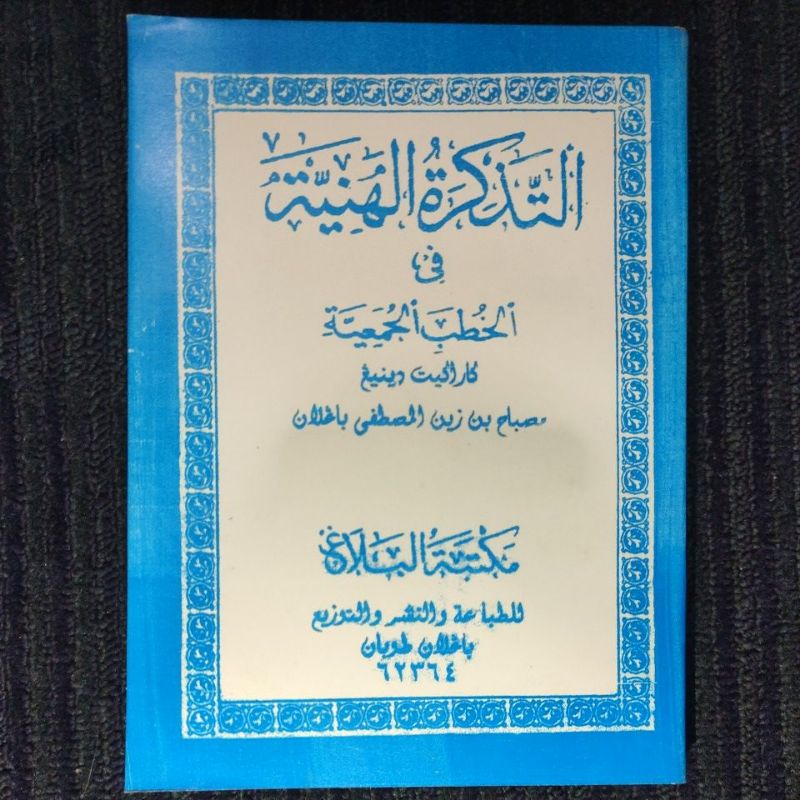 اَلتَّذْكِرَةُ الْهَنِيَّة
فِي
اَلْخُطَبِ الْجُمُعِيَّةِ
كاراكيت دينيڠ
مصباح بن زين المصطفى باڠلان
مَكْتَبَةُ الْبَلَاغ
للطباعة والنشر والتوزيع
باڠلان طوبان
٦٢٣٦٤